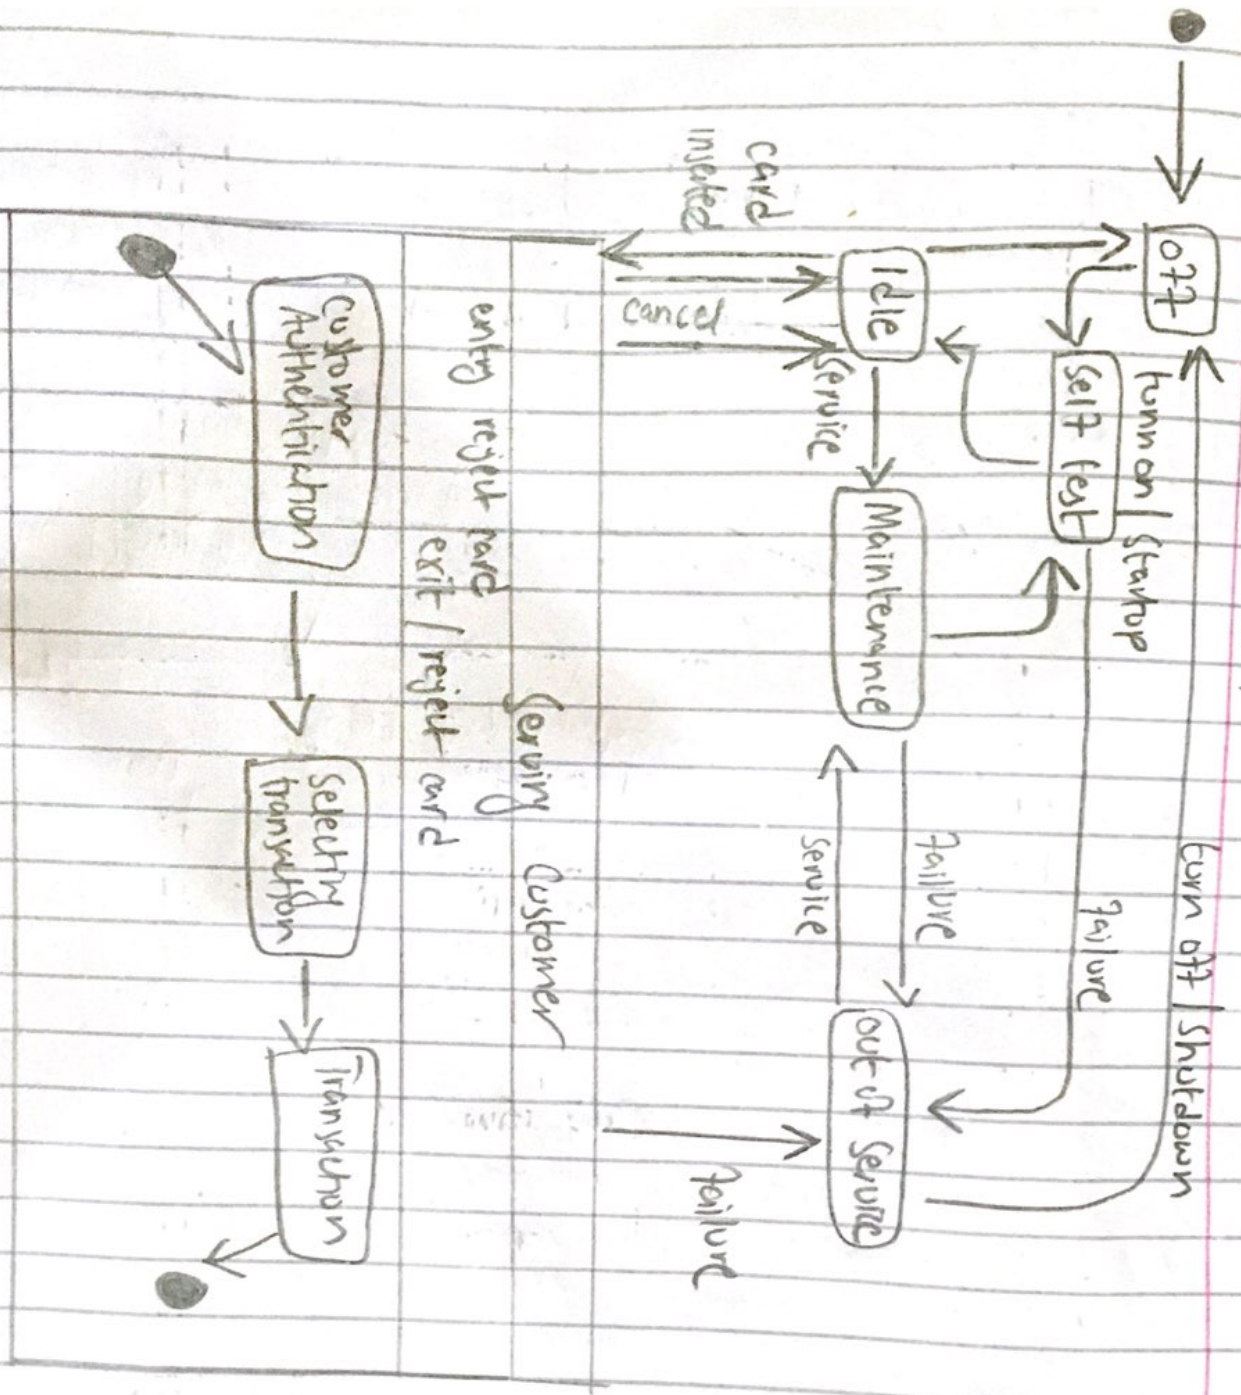 off
turn on / Startup
Self test
turn off / Shutdown
failure
Idle
Service
Maintenance
failure
service
out of Service
card
inserted
cancel
failure
Serving Customer
entry reject card
exit / reject card
Customer
Authentication
Selecting
transaction
Transaction